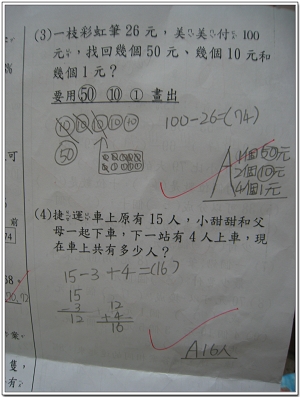 (3)一枝彩虹筆26元，美美付100
元，找回幾個50元、幾個10元和
幾個1元？
要用㊿ ⑩ ① 畫出
10 10 10 10 10
50
100-26=(74)
A 1個50元
2個10元
4個1元
(4)捷運車上原有15人，小甜甜和父
母一起下車，下一站有4人上車，現
在車上共有多少人？
15-3+4=(16)
15
-3
12
12
+4
16
A16人
可
前
74
隻，
有